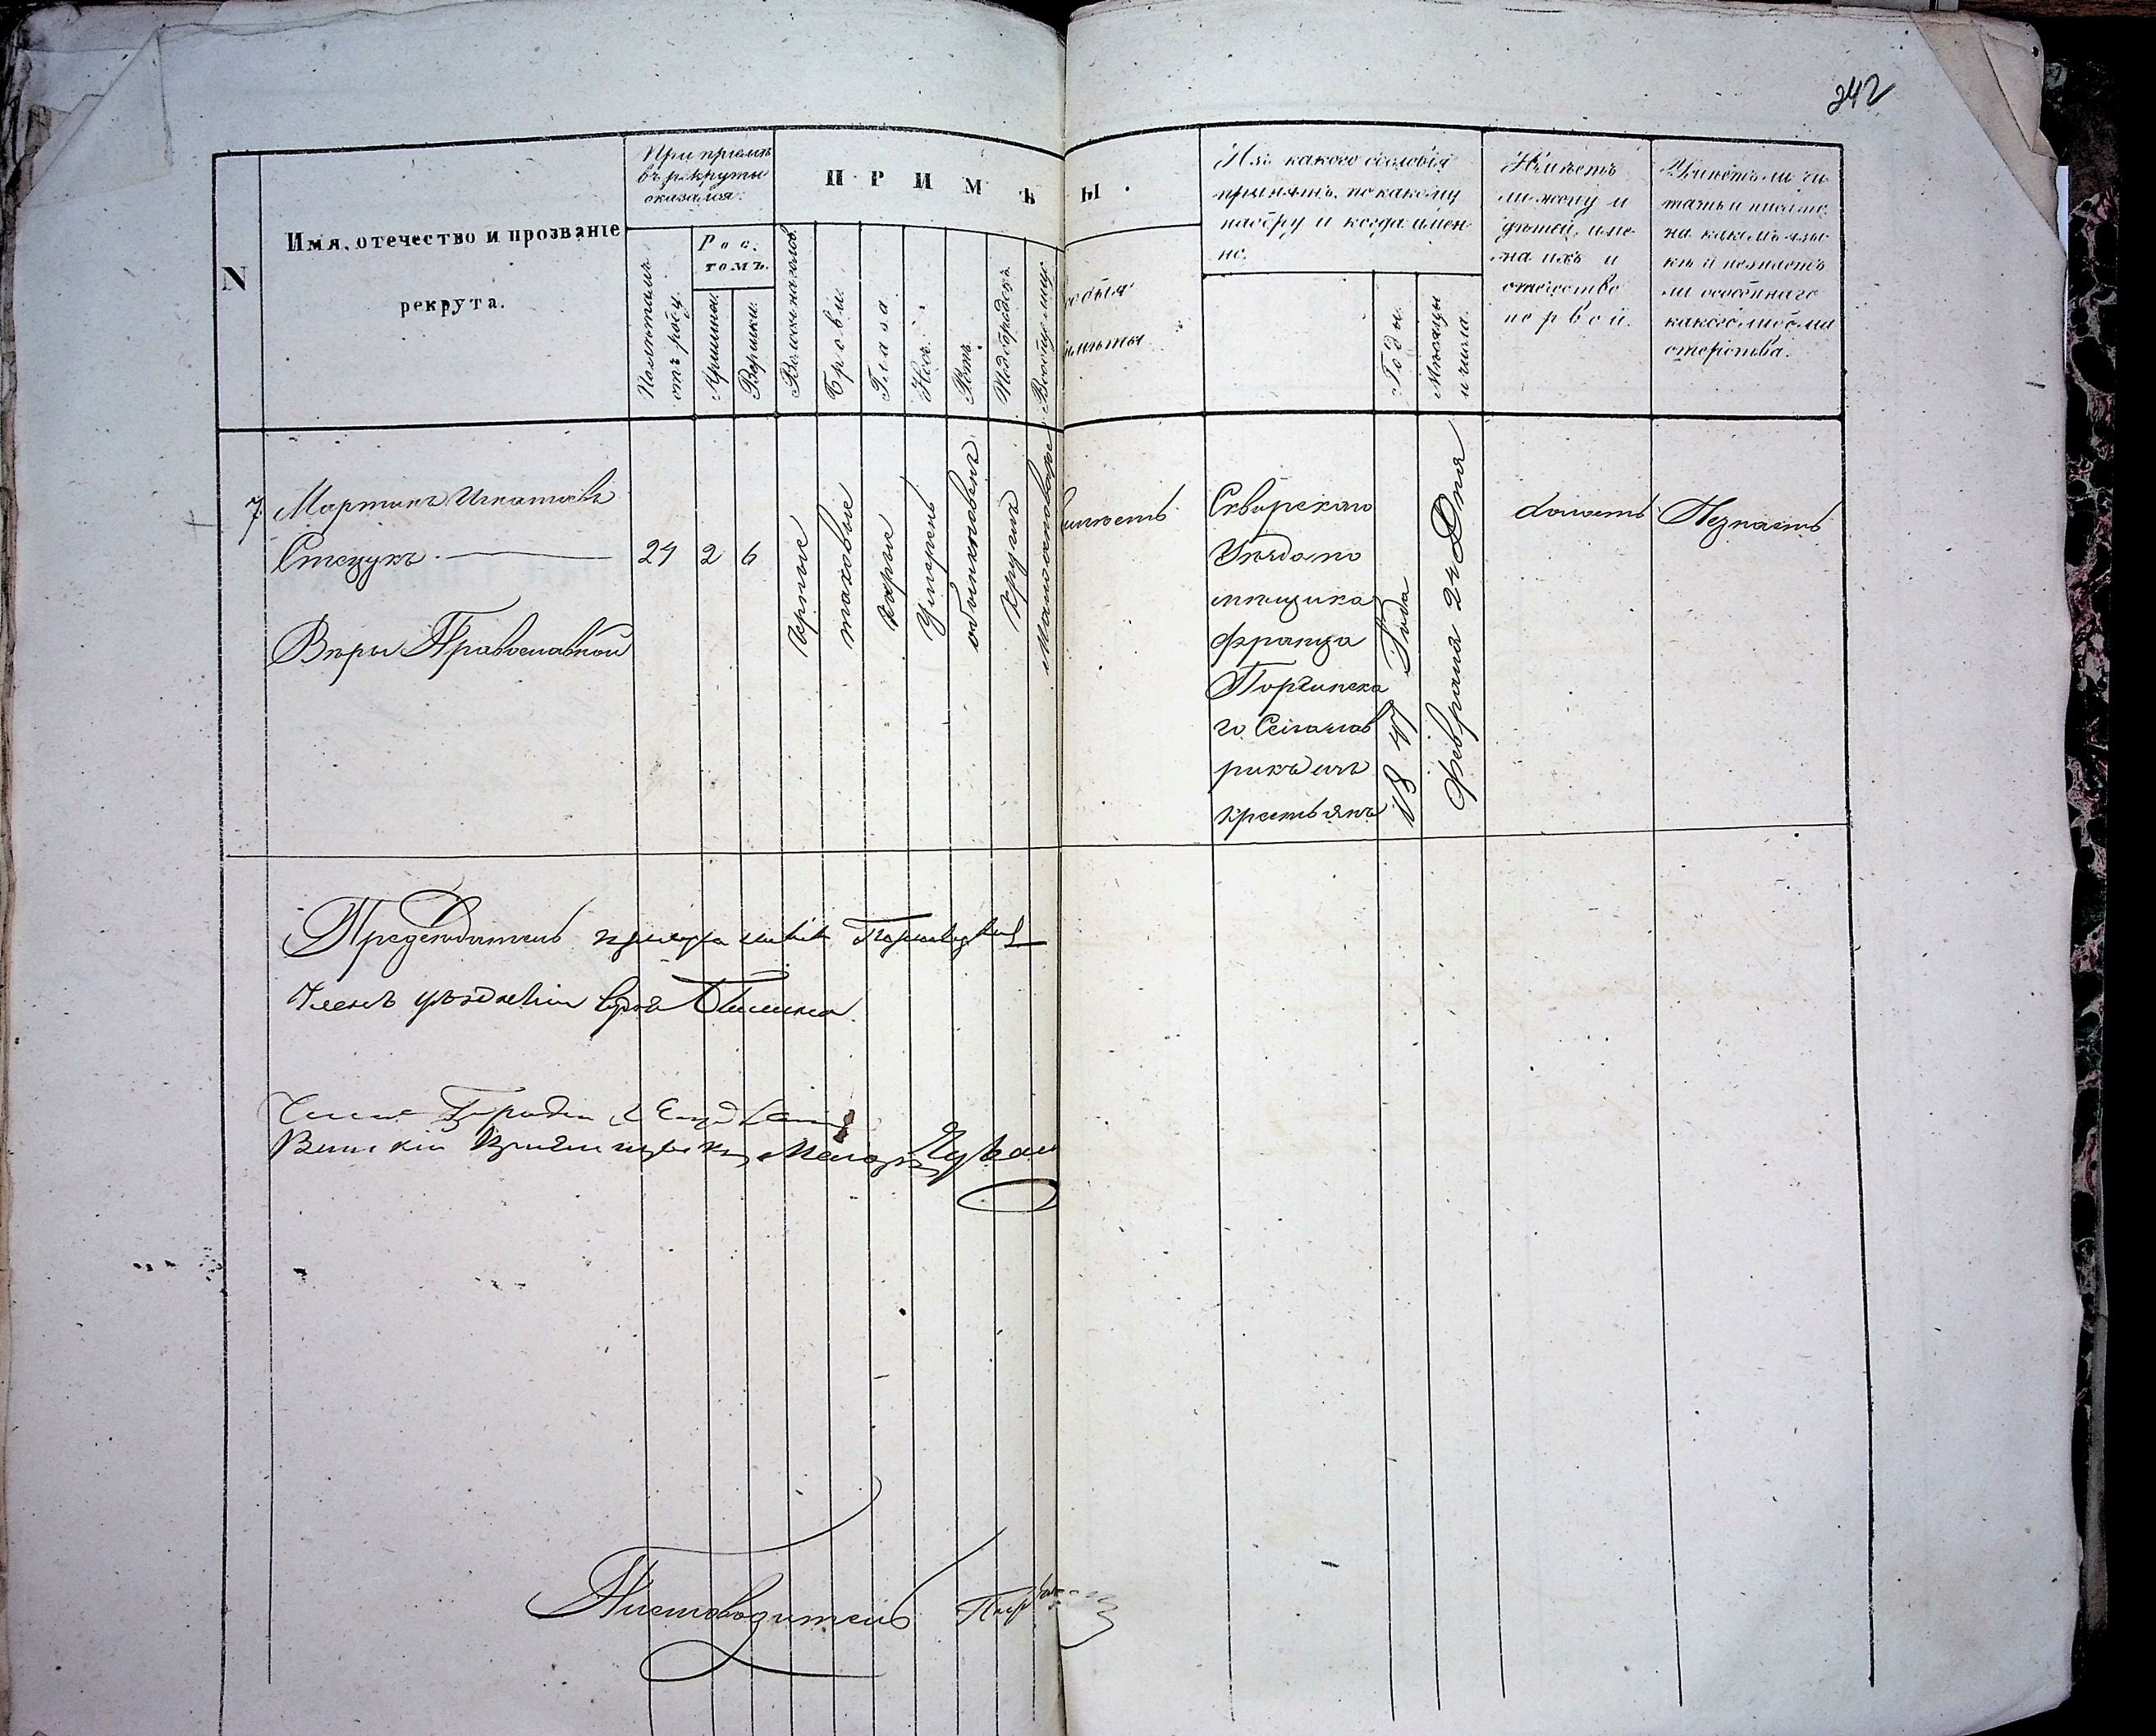 242
N
Имя, отечество и прозваніе
рекрута.
При пріемѣ
въ рекруты
оказался:
Полѣтамъ
отъ роду.
Рос.
томъ.
Аршины.
Вершки.
ПРИМѢ
Ы.
Волосы на голов.
Брови.
Глаза.
Носъ.
Ротъ.
Подбородокъ.
Вообще лице
собыя
имѣты
Изъ какого сословія
принятъ, по какому
набору и когда имен-
но.
Годы.
Мѣсяцы
и числа.
Неимѣетъ
ли жену и
дѣтей, име-
на ихъ и
отечество
первой.
Умѣетъ ли чи-
тать и писать,
на какомъ язы-
кѣ и незнаетъ
ли особеннаго
какого либо ма
стерства.
7.
Мартинъ Игнатіевъ
Стецукъ.
Вѣры Православной
24
2
6
Черные
таковые
Карие
Умѣренъ
обыкновенъ
Круглъ
имѣетъ
Сквирскаго
Уѣзда по
мѣщика
Франца
Порчинска
го Села
рикъ изъ
крестьянъ
1847 Года
Февраля 24 Дня
Холостъ
Незнаетъ
Председатель
Членъ уѣздный врачъ
Воинскій Маіоръ
Письмоводитель